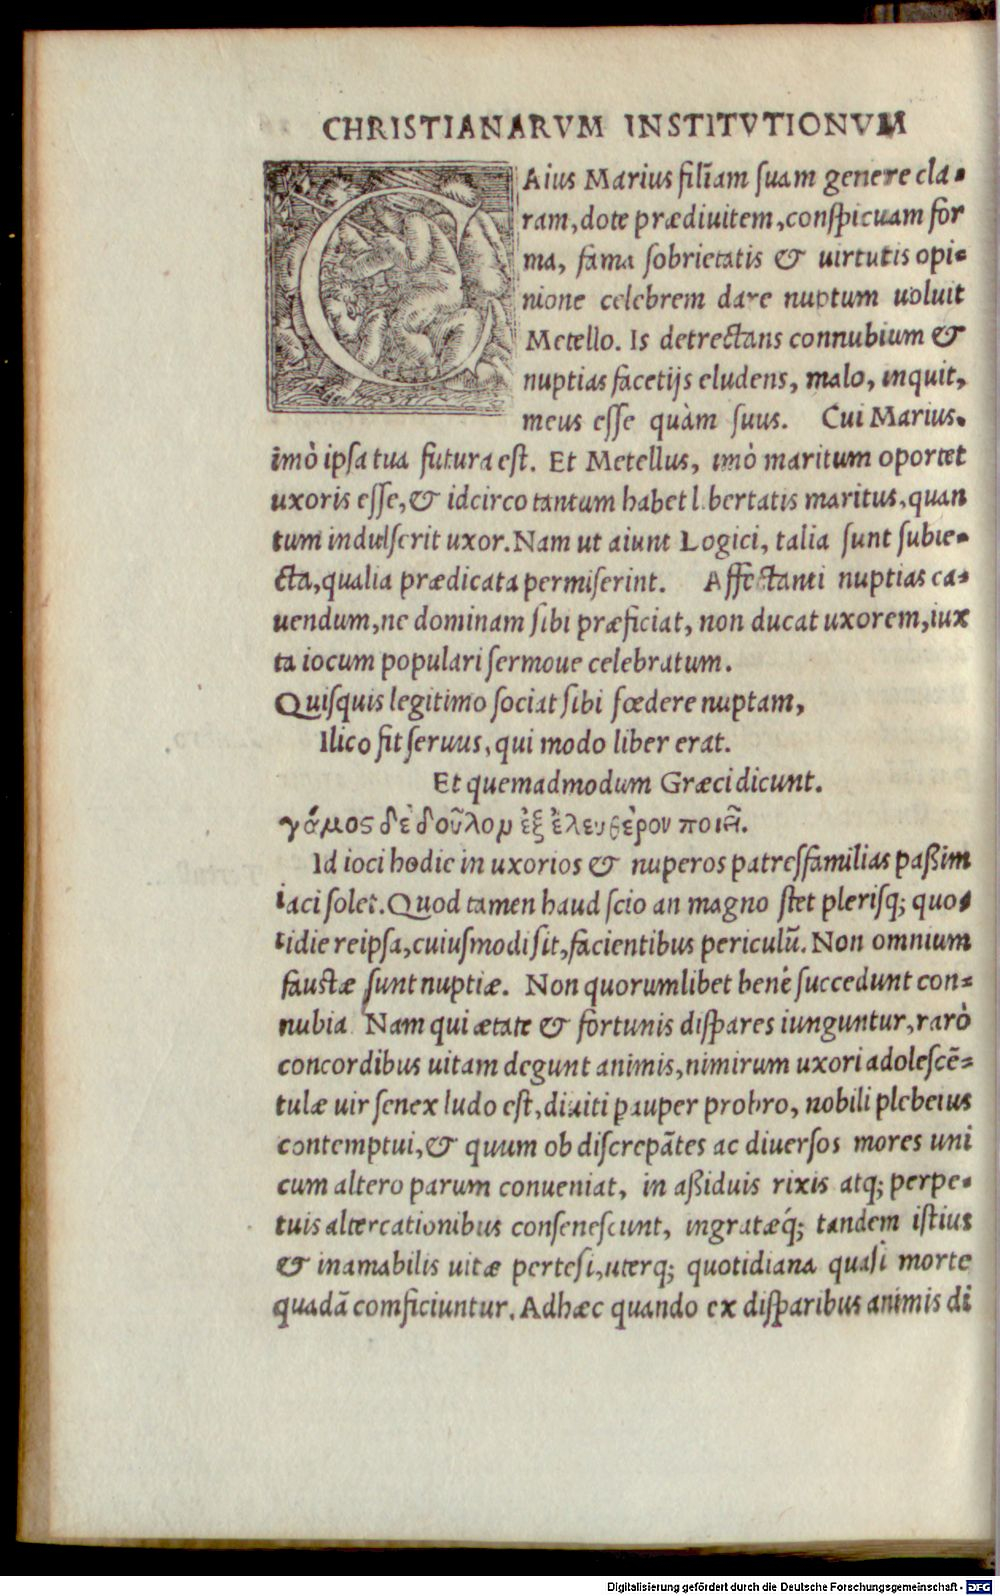 CHRISTIANARVM INSTITVTIONVM
CAius Marius filīam suam genere cla-
ram, dote prædiuitem, conspicuam for
ma, fama sobrietatis & uirtutis opi-
nione celebrem dare nuptum uoluit
Metello. Is detrectans connubium &
nuptias facetijs eludens, malo, inquit,
meus esse quàm suus. Cui Marius.
imò ipsa tua futura est. Et Metellus, imò maritum oportet
uxoris esse, & idcirco tantum habet libertatis maritus, quan
tum indulserit uxor. Nam ut aiunt Logici, talia sunt subie-
cta, qualia prædicata permiserint. Affectanti nuptias ca-
uendum, ne dominam sibi præficiat, non ducat uxorem, iux
ta iocum populari sermoue celebratum.
Quisquis legitimo sociat sibi fœdere nuptam,
Ilico fit seruus, qui modo liber erat.
Et quemadmodum Græci dicunt.
γάμος δὲ δοῦλον ἐξ ἐλευθέρου ποιεῖ.
Id ioci hodie in uxorios & nuperos patresfamilias paßim
iaci solet. Quod tamen haud scio an magno stet plerisq; quo-
tidie reipsa, cuiusmodi sit, facientibus periculū. Non omnium
faustæ sunt nuptiæ. Non quorumlibet benè succedunt con-
nubia Nam qui ætate & fortunis dispares iunguntur, rarò
concordibus uitam degunt animis, nimirum uxori adolescē-
tulæ uir senex ludo est, diuiti pauper probro, nobili plebeius
contemptui, & quum ob discrepātes ac diuersos mores uni
cum altero parum conueniat, in aßiduis rixis atq; perpe-
tuis altercationibus consenescunt, ingratæq́; tandem istius
& inamabilis uitæ pertesi, uterq; quotidiana quasi morte
quadā comficiuntur. Adhæc quando ex disparibus animis di
Digitalisierung gefördert durch die Deutsche Forschungsgemeinschaft - DFG